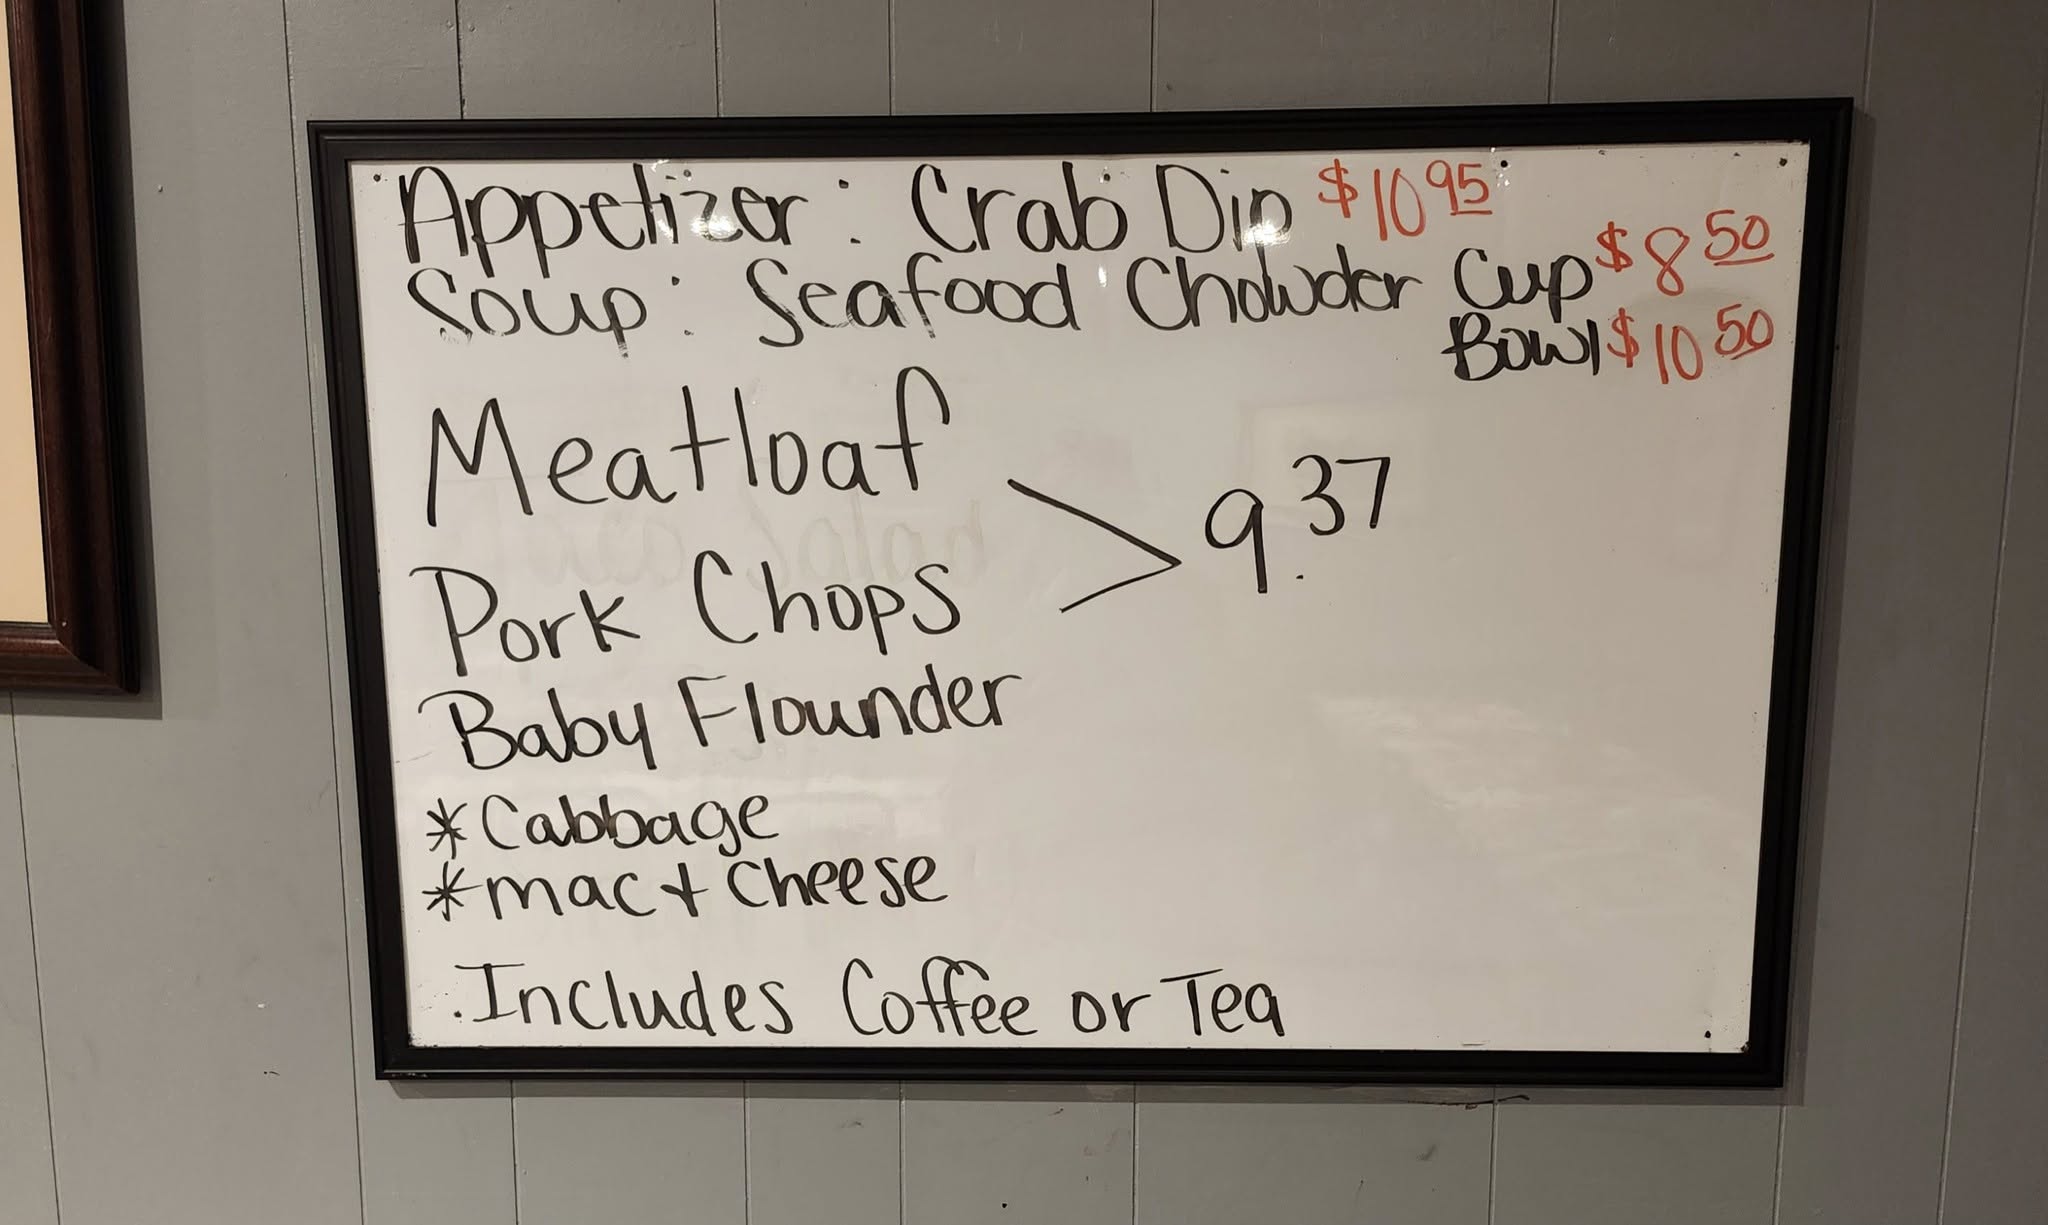 Appetizer: Crab Dip $10 95
Soup: Seafood Chowder Cup $8 50
Bowl $10 50
Meatloaf
> 9.37
Pork Chops
Baby Flounder
*Cabbage
*mac + Cheese
.Includes Coffee or Tea